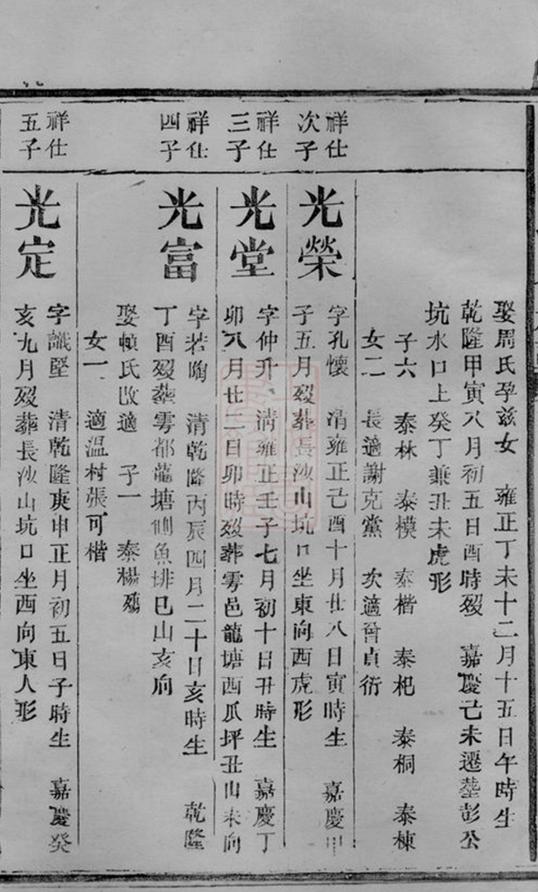 娶周氏孕兹女 雍正丁未十二月十五日午時生
乾隆甲寅八月初五日酉時歿 嘉慶己未遷塟彭公
坑水口上癸丁兼丑未虎形
子六 泰林 泰模 泰楷 泰杞 泰桐 泰棟
女二 長適謝克黨 次適曾貞衍
祥仕
次子
光榮
字孔懷 清雍正己酉十月廿八日寅時生 嘉慶甲
子五月歿葬長沙山坑口坐東向西虎形
祥仕
三子
光堂
字仲升 清雍正壬子七月初十日丑時生 嘉慶丁
卯八月廿二日卯時歿葬雩邑龍塘西瓜坪丑山未向
祥仕
四子
光富
字若陶 清乾隆丙辰四月二十日亥時生 乾隆
丁酉歿葬雩都龍塘側魚排巳山亥向
娶賴氏改適 子一 泰楊殤
女一 適温村張可楷
祥仕
五子
光定
字識堅 清乾隆庚申正月初五日子時生 嘉慶癸
亥九月歿葬長沙山坑口坐西向東人形